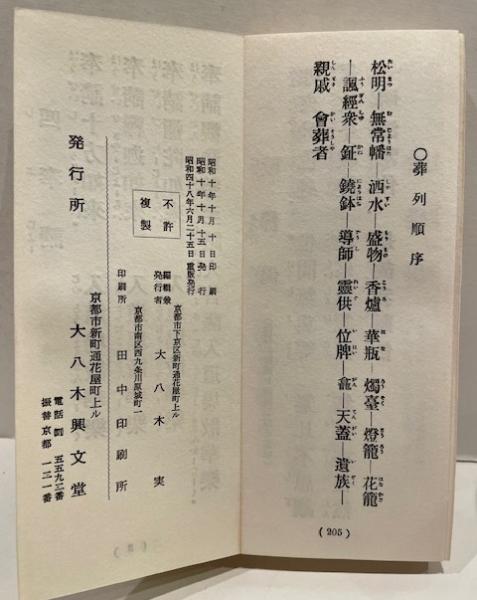 〇葬列順序
松明―無常幡 洒水―盛物―香爐 華瓶―燭臺―燈籠―花籠
―諷經衆―鉦―鐃鉢―導師―靈供―位牌―龕―天蓋―遺族―
親戚 會葬者
(205)
昭和十年十月十日印刷
昭和十年十月十五日発行
昭和四十八年六月二十五日重版発行
不許
複製
京都市下京区新町通花屋町上ル
編輯兼
発行者 大八木実
京都市南区西九条川原城町一
印刷所 田中印刷所
発行所
京都市新町通花屋町上ル
大八木興文堂
振替京都 一二一番